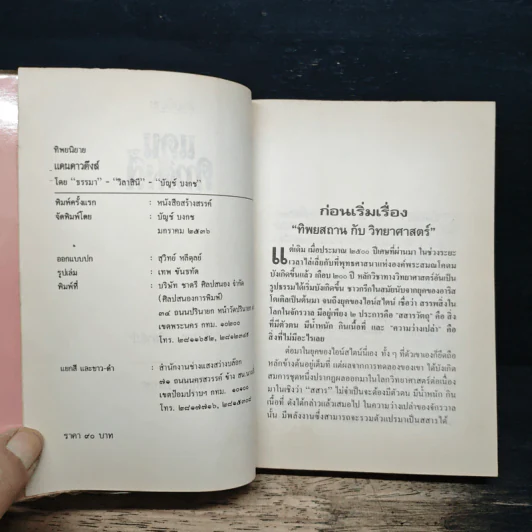 ทิพยนิยาย
แดนดาวดึงส์
โดย “ธรรมา” - “วิลาสินี” - “บัญช์ บงกช”
พิมพ์ครั้งแรก : หนังสือสร้างสรรค์
จัดพิมพ์โดย : บัญช์ บงกช
มกราคม ๒๕๓๖
ออกแบบปก : สุวิทย์ หลีดุลย์
รูปเล่ม : เทพ ขันธทัต
พิมพ์ที่ : บริษัท ชาตรี ศิลปสนอง จำกัด
(ศิลปสนองการพิมพ์)
เขตพระนคร กทม. ๑๐๒๐๐
แยกสี และขาว-ดำ : สำนักงานช่างแสงสว่างบล๊อก
๗๑ ถนนนครสวรรค์
เขตป้อมปราบฯ กทม. ๑๐๑๐๐
ราคา ๙๐ บาท
ก่อนเริ่มเรื่อง
“ทิพยสถาน กับ วิทยาศาสตร์”
แต่เดิม เมื่อประมาณ ๒๕๐๐ ปีเศษที่ผ่านมา ในช่วงระยะ
เวลาไล่เลี่ยกับที่พุทธศาสนาแห่งองค์พระสมณโคดม
บังเกิดขึ้นแล้ว เกือบ ๒๐๐ ปี หลักวิชาทางวิทยาศาสตร์อันเป็น
รูปธรรมได้เริ่มบังเกิดขึ้น ชาวกรีกในสมัยนับจากยุคของอาริส
โตเติลเป็นต้นมา จนถึงยุคของไอน์สไตน์ เชื่อว่า สรรพสิ่งใน
โลกในจักรวาล มีอยู่เพียง ๒ ประการคือ “สสารวัตถุ” คือ สิ่ง
ที่มีตัวตน มีน้ำหนัก กินเนื้อที่ และ “ความว่างเปล่า” คือ
สิ่งที่ไม่มีอะไรเลย
ต่อมาในยุคของไอน์สไตน์นี่เอง ทั้ง ๆ ที่ตัวเขาเองก็ยึดถือ
หลักข้างต้นอยู่เต็มที่ แต่ผลจากการทดลองของเขา ได้บังเกิด
สมการชุดหนึ่งปรากฏผลออกมาในโลกวิทยาศาสตร์ต่อเนื่อง
มาในเชิงว่า “สสาร” ไม่จำเป็นจะต้องมีตัวตน มีน้ำหนัก กิน
เนื้อที่ ดังได้กล่าวแล้วเสมอไป ในความว่างเปล่าของจักรวาล
นั้น มีพลังงานซึ่งสามารถจะรวมตัวแปรมาเป็นสสารได้